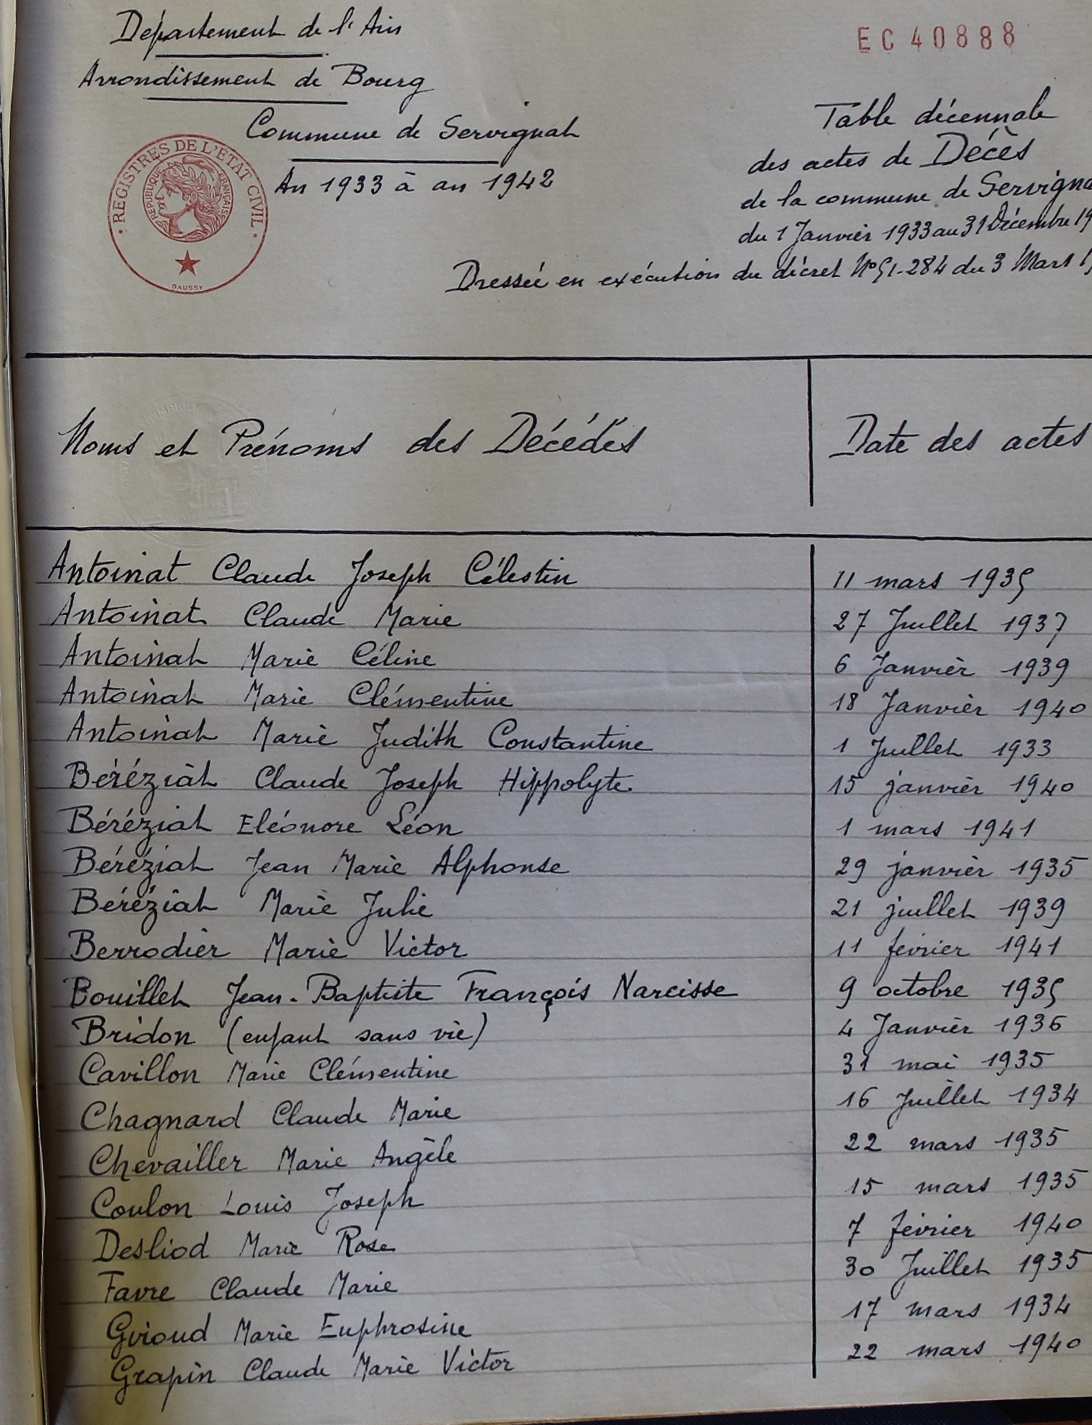 Département de l'Ain
EC 40888
Arrondissement de Bourg
Commune de Servignat
An 1933 à an 1942
REGISTRES DE L'ETAT CIVIL
REPUBLIQUE FRANÇAISE
DAUSSY
Table décennale
des actes de Décès
de la commune de Servigna
du 1 Janvier 1933 au 31 Décembre 19
Dressée en exécution du décret N° 51-284 du 3 Mars 19
Noms et Prénoms des Décédés Date des actes
Antoinat Claude Joseph Célestin 11 mars 1935
Antoinat Claude Marie 27 Juillet 1937
Antoinat Marie Céline 6 Janvier 1939
Antoinat Marie Clémentine 18 Janvier 1940
Antoinat Marie Judith Constantine 1 Juillet 1933
Béréziat Claude Joseph Hippolyte 15 janvier 1940
Béréziat Eléonore Léon 1 mars 1941
Béréziat Jean Marie Alphonse 29 janvier 1935
Béréziat Marie Julie 21 juillet 1939
Berrodier Marie Victor 11 fevrier 1941
Bouillet Jean-Baptiste François Narcisse 9 octobre 1935
Bridon (enfant sans vie) 4 Janvier 1936
Cavillon Marie Clémentine 31 mai 1935
Chagnard Claude Marie 16 Juillet 1934
Chevailler Marie Angèle 22 mars 1935
Coulon Louis Joseph 15 mars 1935
Desliod Marie Rose 7 fevrier 1940
Favre Claude Marie 30 Juillet 1935
Gvioud Marie Euphrosine 17 mars 1934
Grapin Claude Marie Victor 22 mars 1940